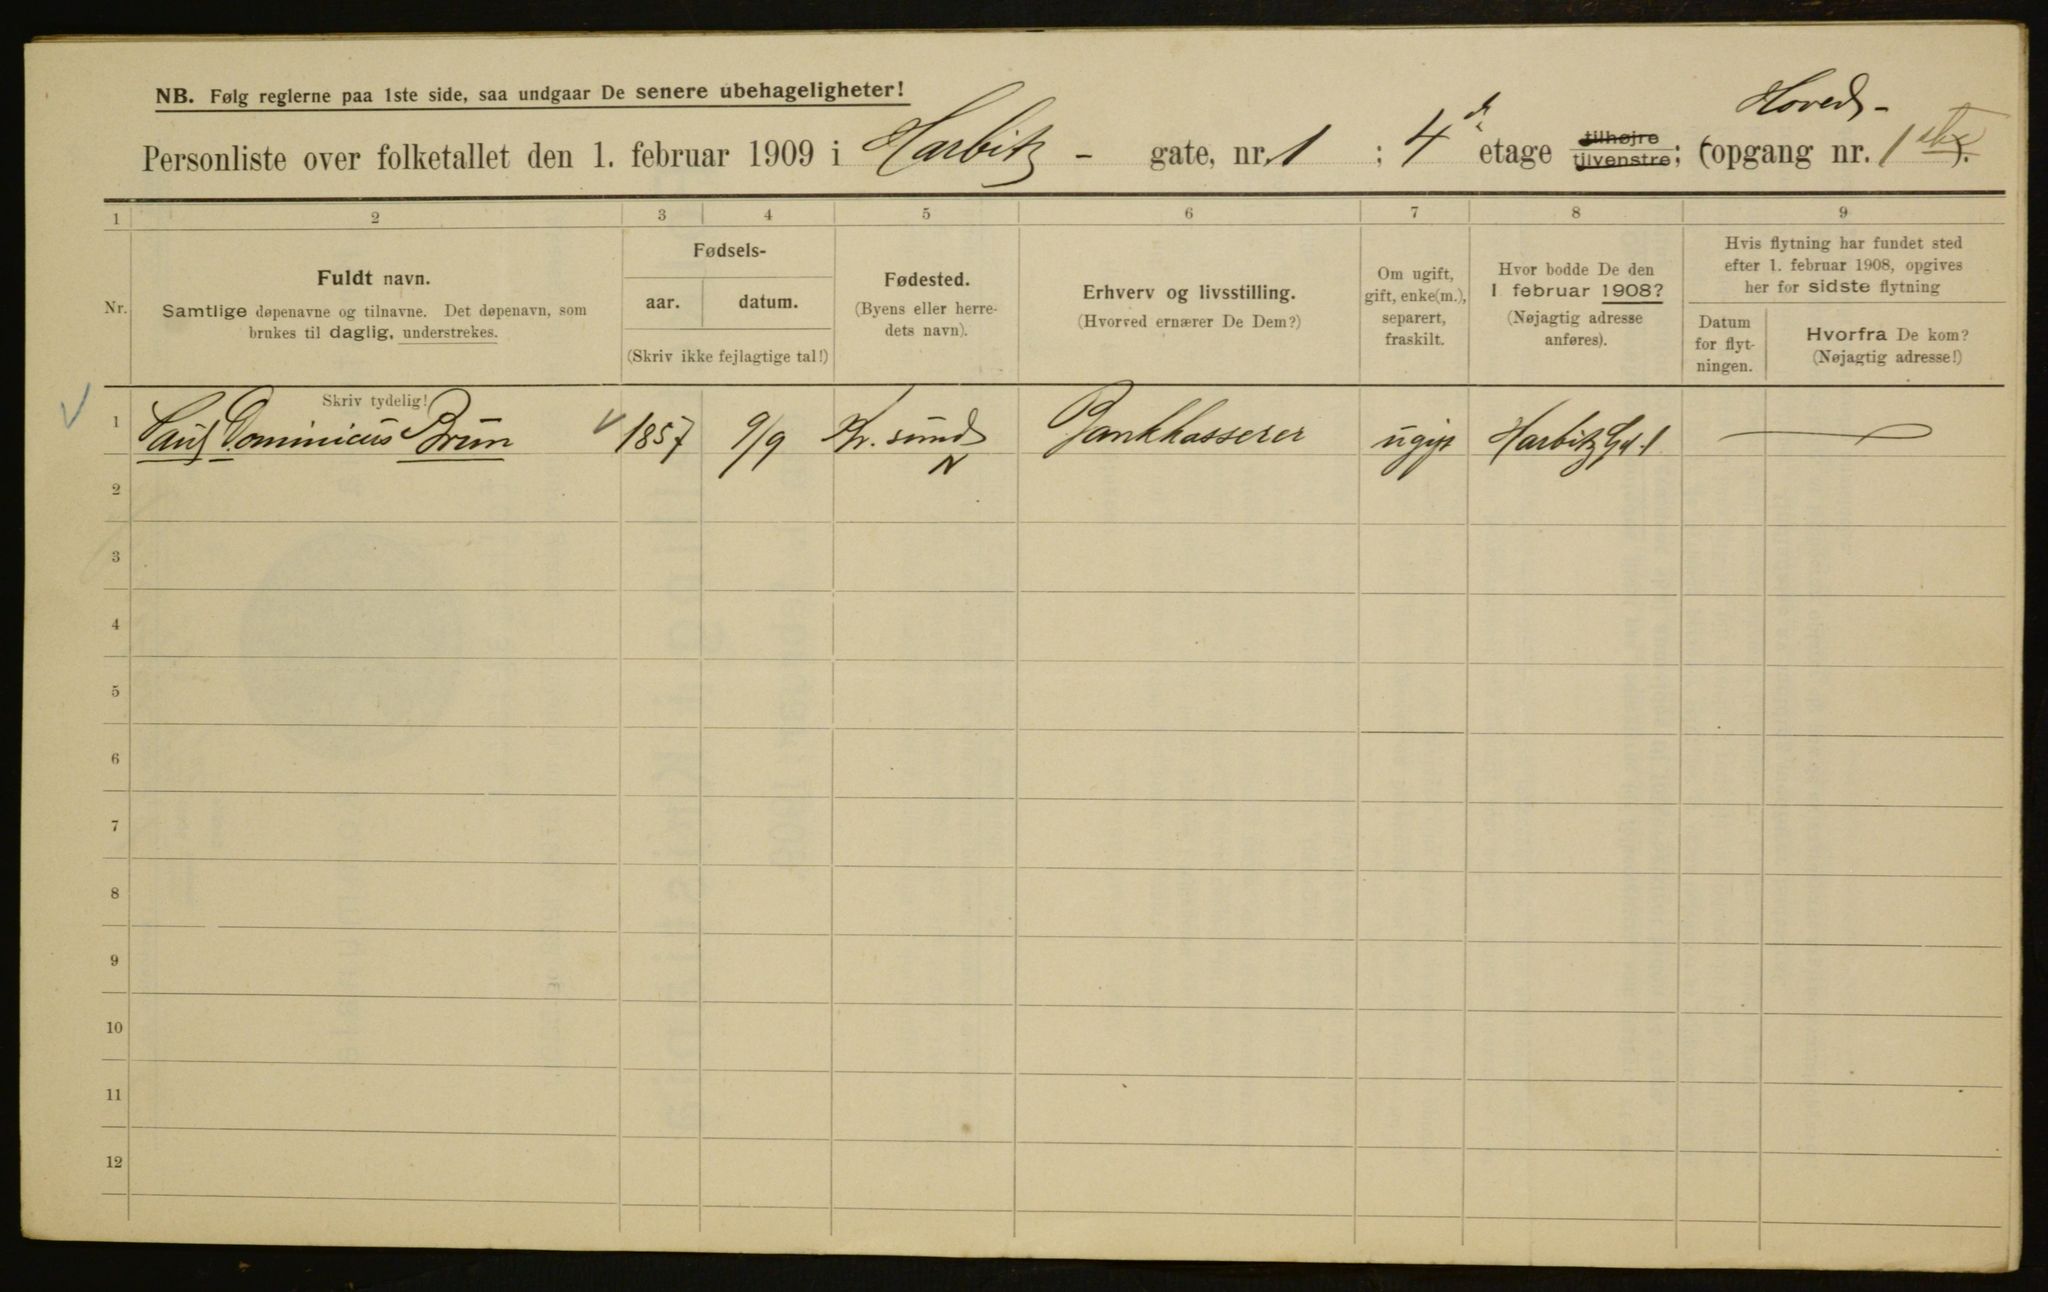 NB. Følg reglerne paa 1ste side, saa undgaar De senere ubehageligheter!
Hoved-
Personliste over folketallet den 1. februar 1909 i Harbitz - gate, nr. 1 ; 4 de etage tilhøjre tilvenstre; (opgang nr. 1
1 2 3 4 5 6 7 8 9
Nr.
Fuldt navn.
Samtlige døpenavne og tilnavne. Det døpenavn, som
brukes til daglig, understrekes.
Fødsels-
aar. datum.
(Skriv ikke fejlagtige tal!)
Fødested.
(Byens eller herre-
dets navn).
Erhverv og livsstilling.
(Hvorved ernærer De Dem?)
Om ugift,
gift, enke(m.),
separert,
fraskilt.
Hvor bodde De den
1 februar 1908?
(Nøjagtig adresse
anføres).
Hvis flytning har fundet sted
efter 1. februar 1908, opgives
her for sidste flytning
Datum
for flyt-
ningen.
Hvorfra De kom?
(Nøjagtig adresse!)
Skriv tydelig!
1 Dominicus Brun 1857 9/9 Kr. sund Bankkasserer ugift Harbitz Gd. 1
N
2
3
4
5
6
7
8
9
10
11
12